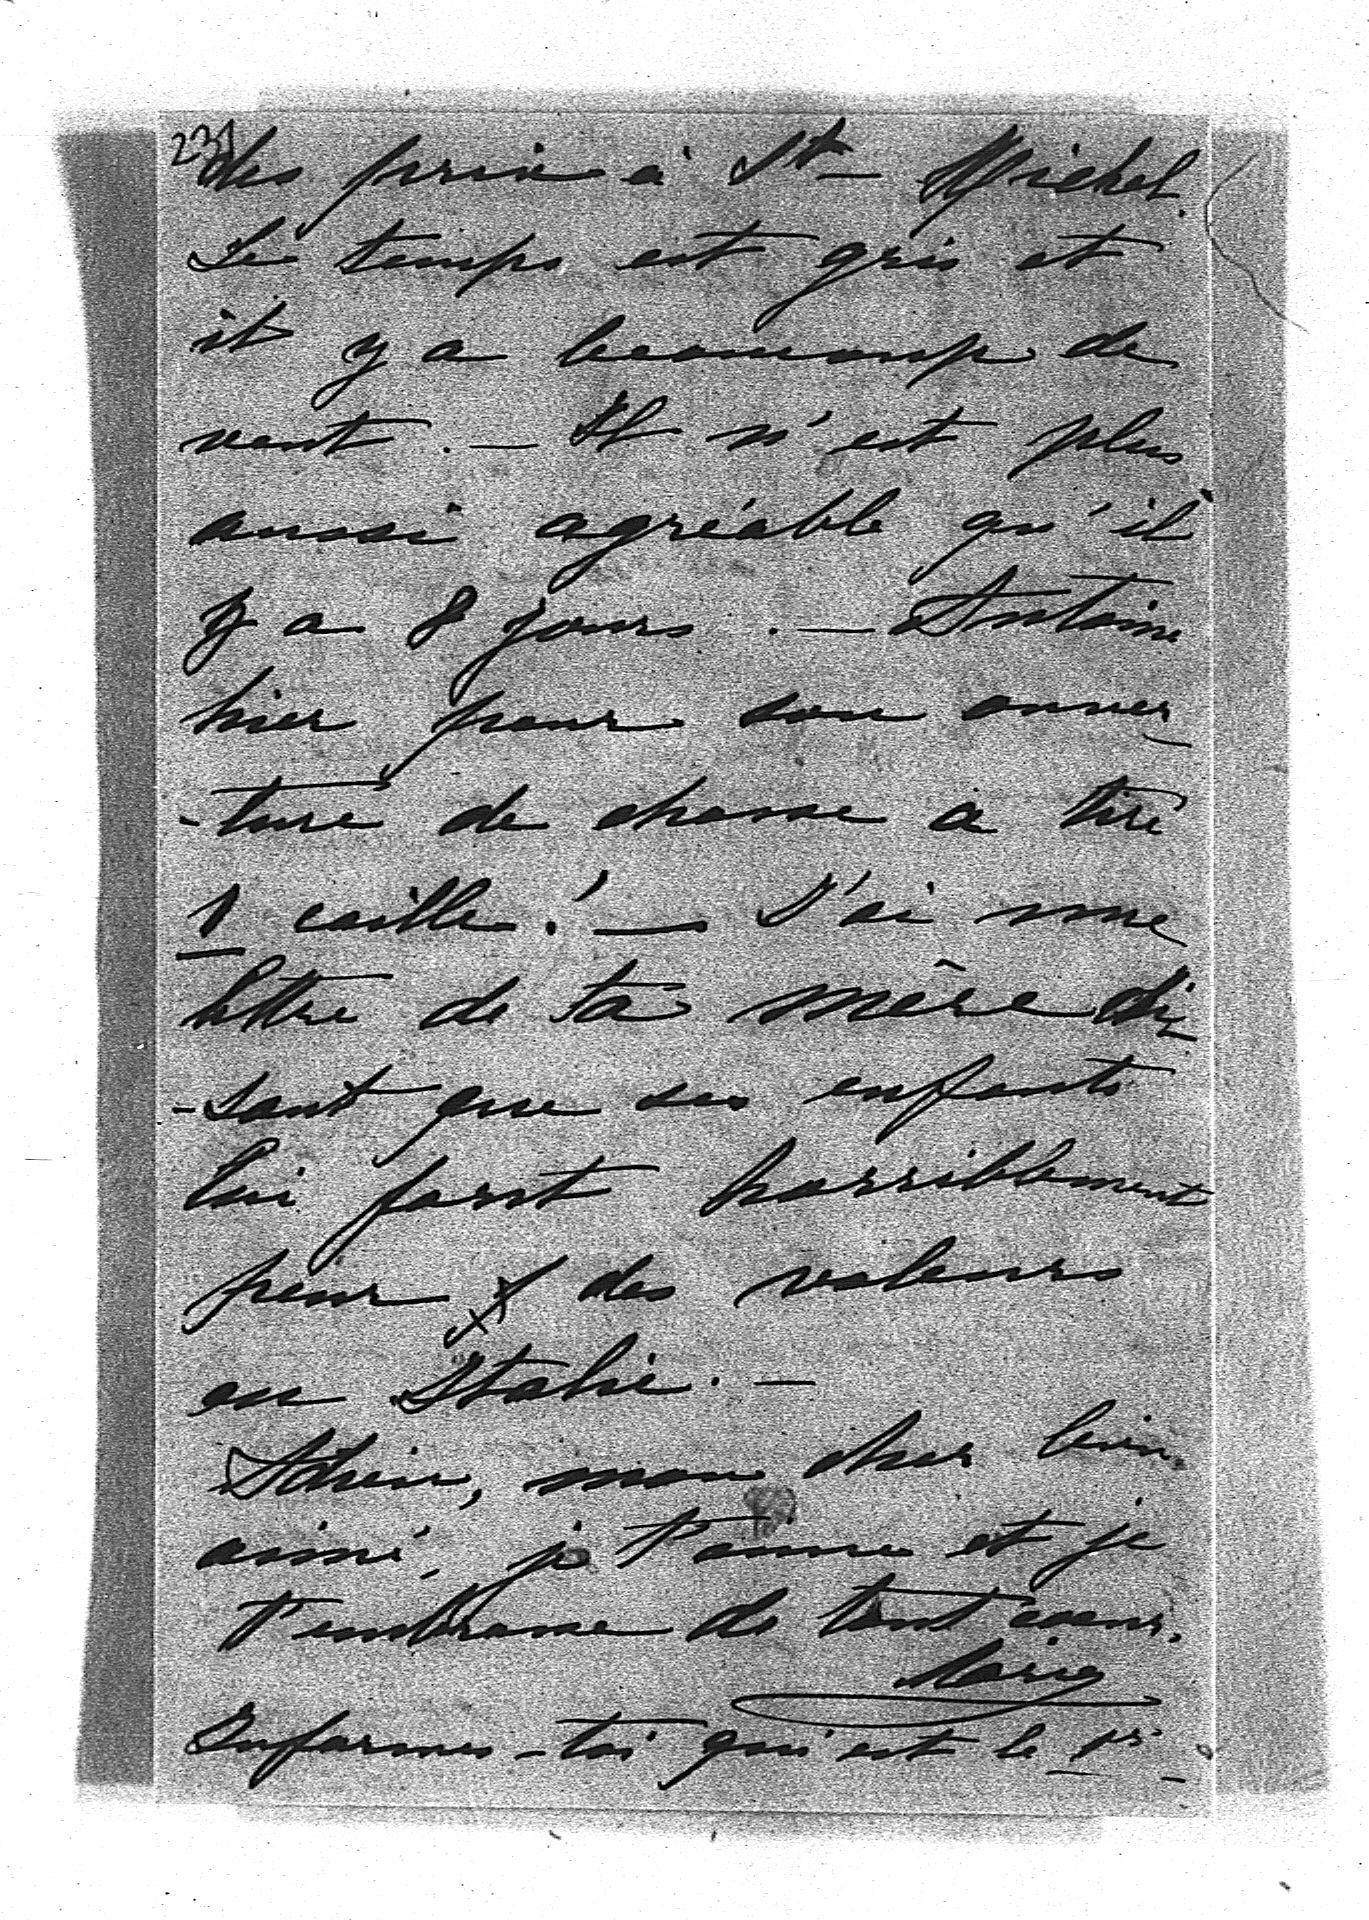 231
des prix à St- Michel.
Le temps est gris et
il y a beaucoup de
vent. — Il n'est plus
aussi agréable qu'il
y a 8 jours. — Antoine
hier pour son ouver-
-ture de chasse a tiré
1 caille! — J'ai une
lettre de ta mère di-
-sant que ses enfants
lui font horriblement
peur des valeurs
en Italie. —
Adieu, mon cher bien
aimé, je t'aime et je
t'embrasse de tout coeur.
Marie
Informes-toi qui est le 1r